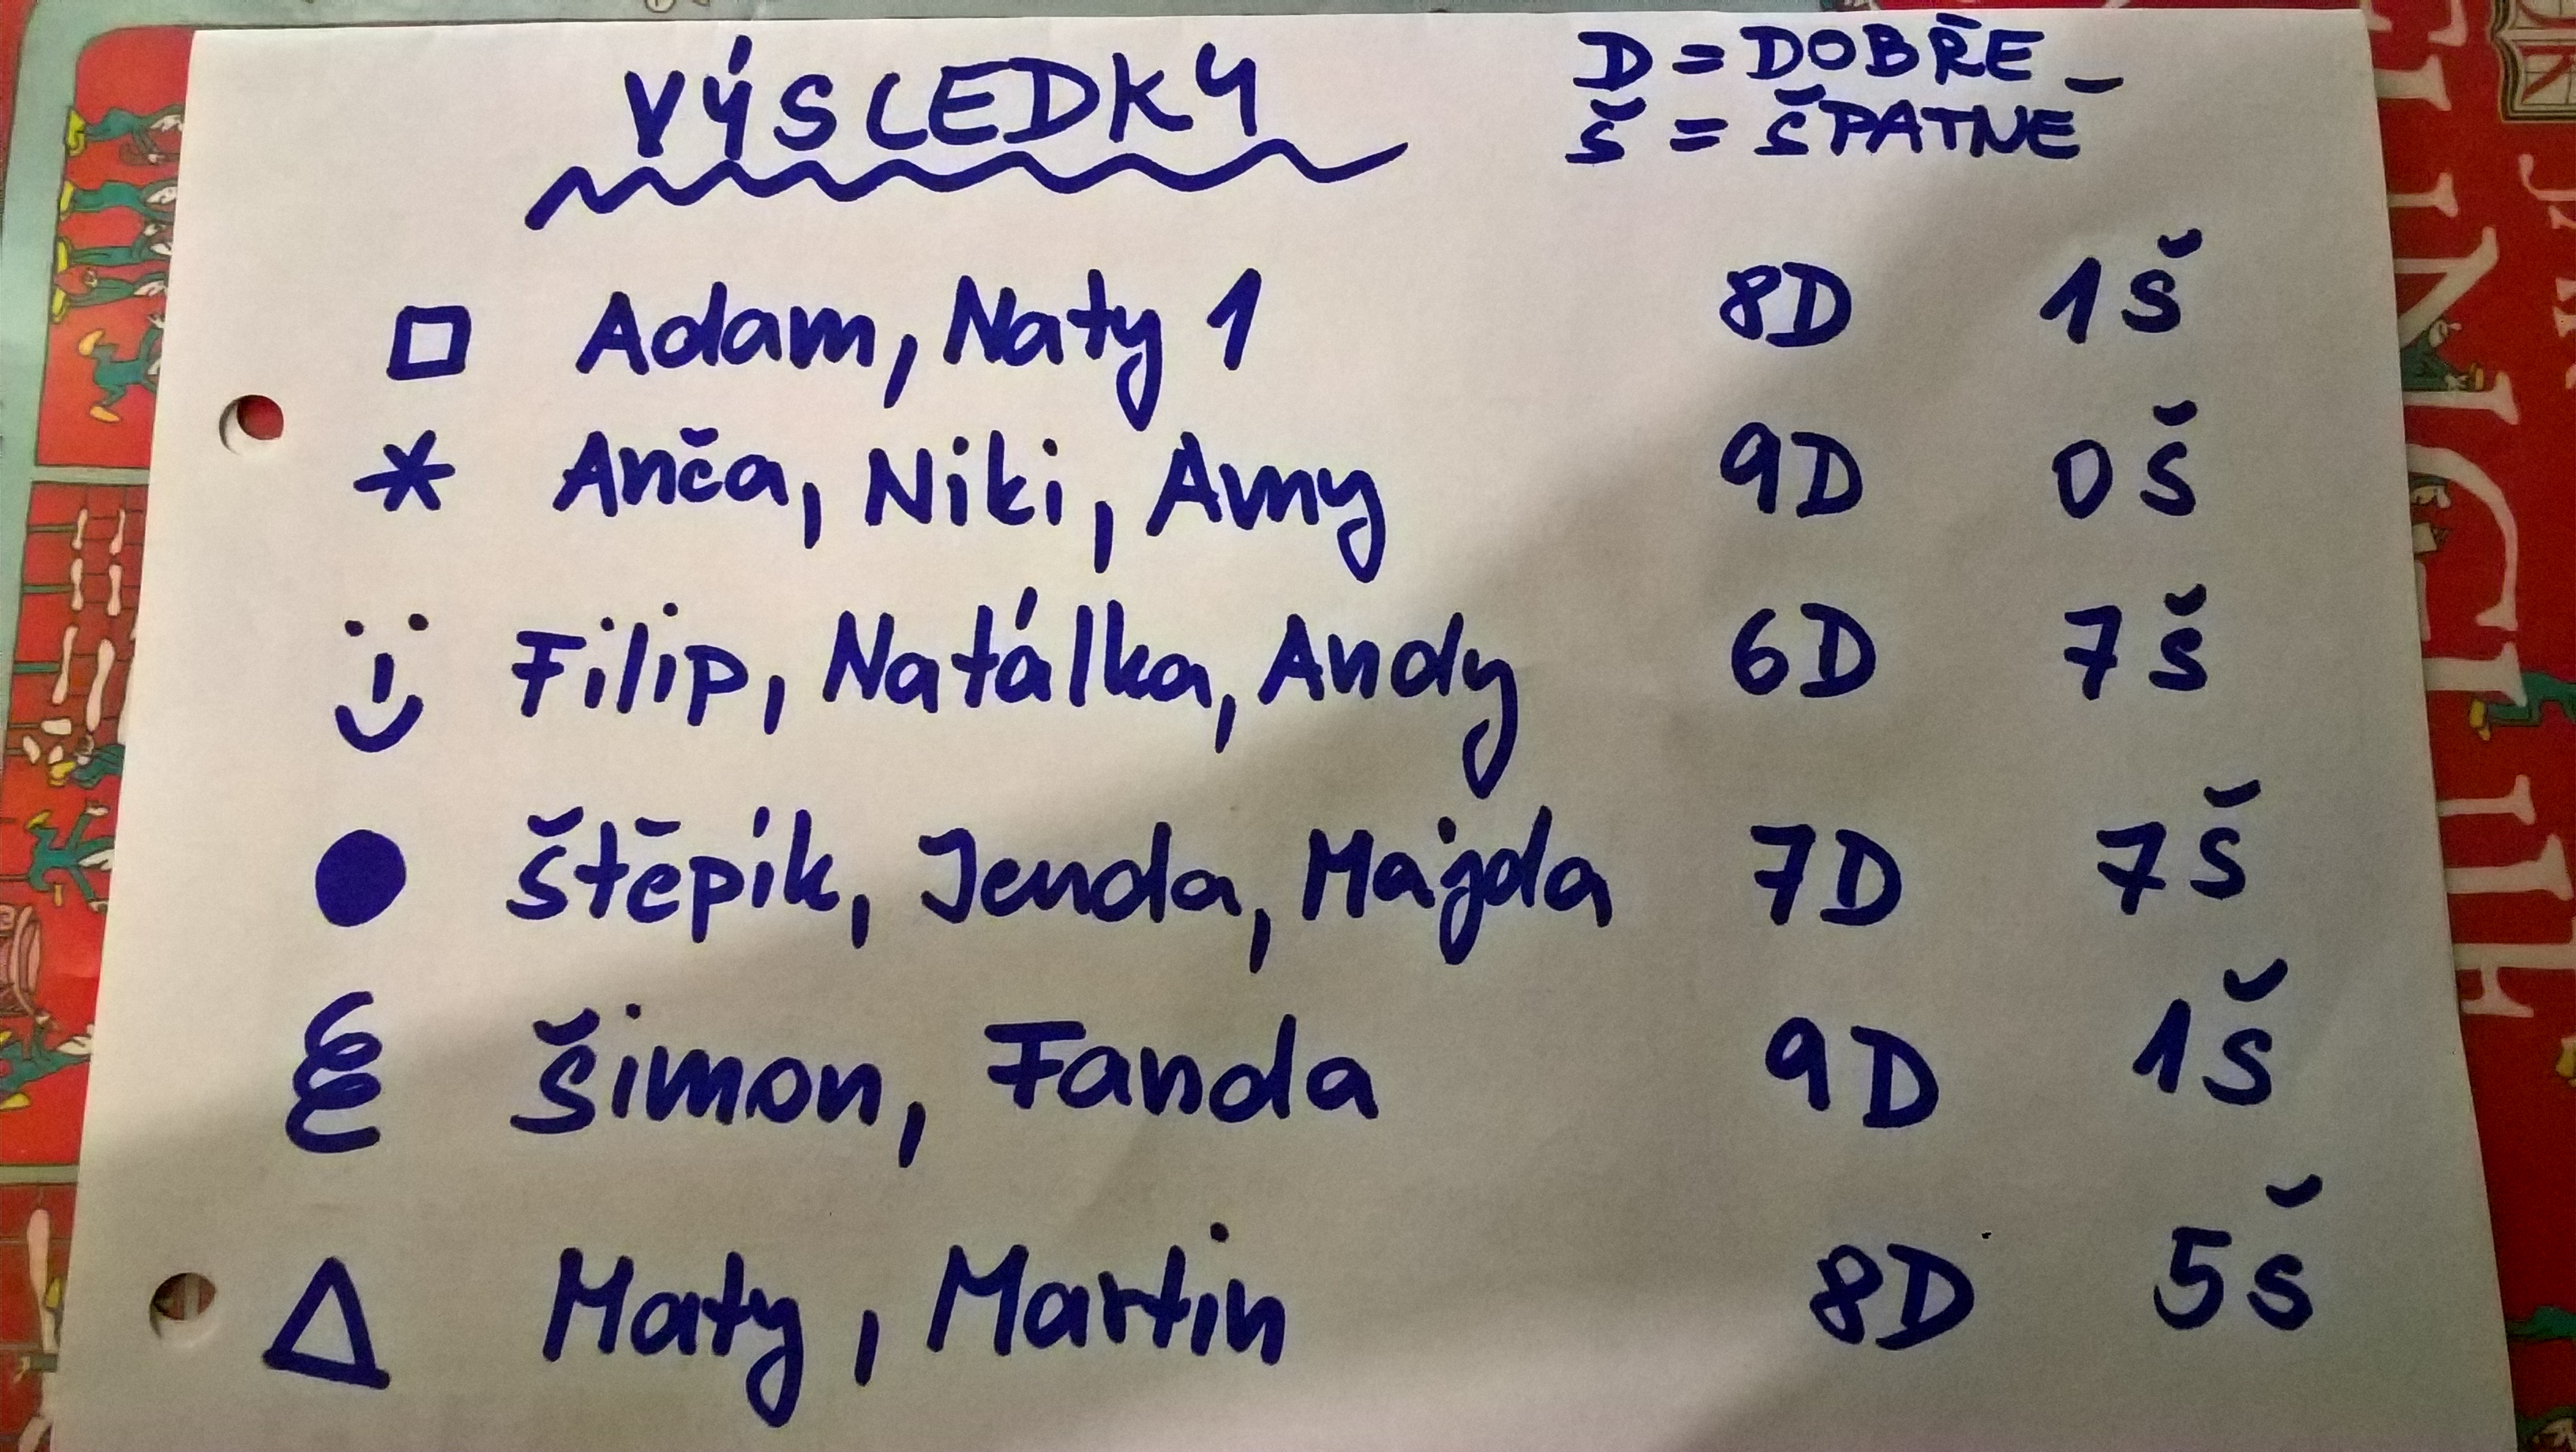 VÝSLEDKY
D = DOBŘE
Š = ŠPATNĚ
Adam, Naty 1 8D 1Š
Anča, Niki, Amy 9D 0Š
Filip, Natálka, Andy 6D 7Š
Štěpík, Jenda, Magda 7D 7Š
Šimon, Fanda 9D 1Š
Maty, Martin 8D 5Š